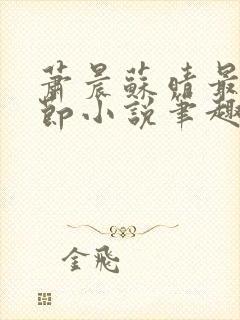 蕭晨蘇晴最
節小說筆趣
金飛